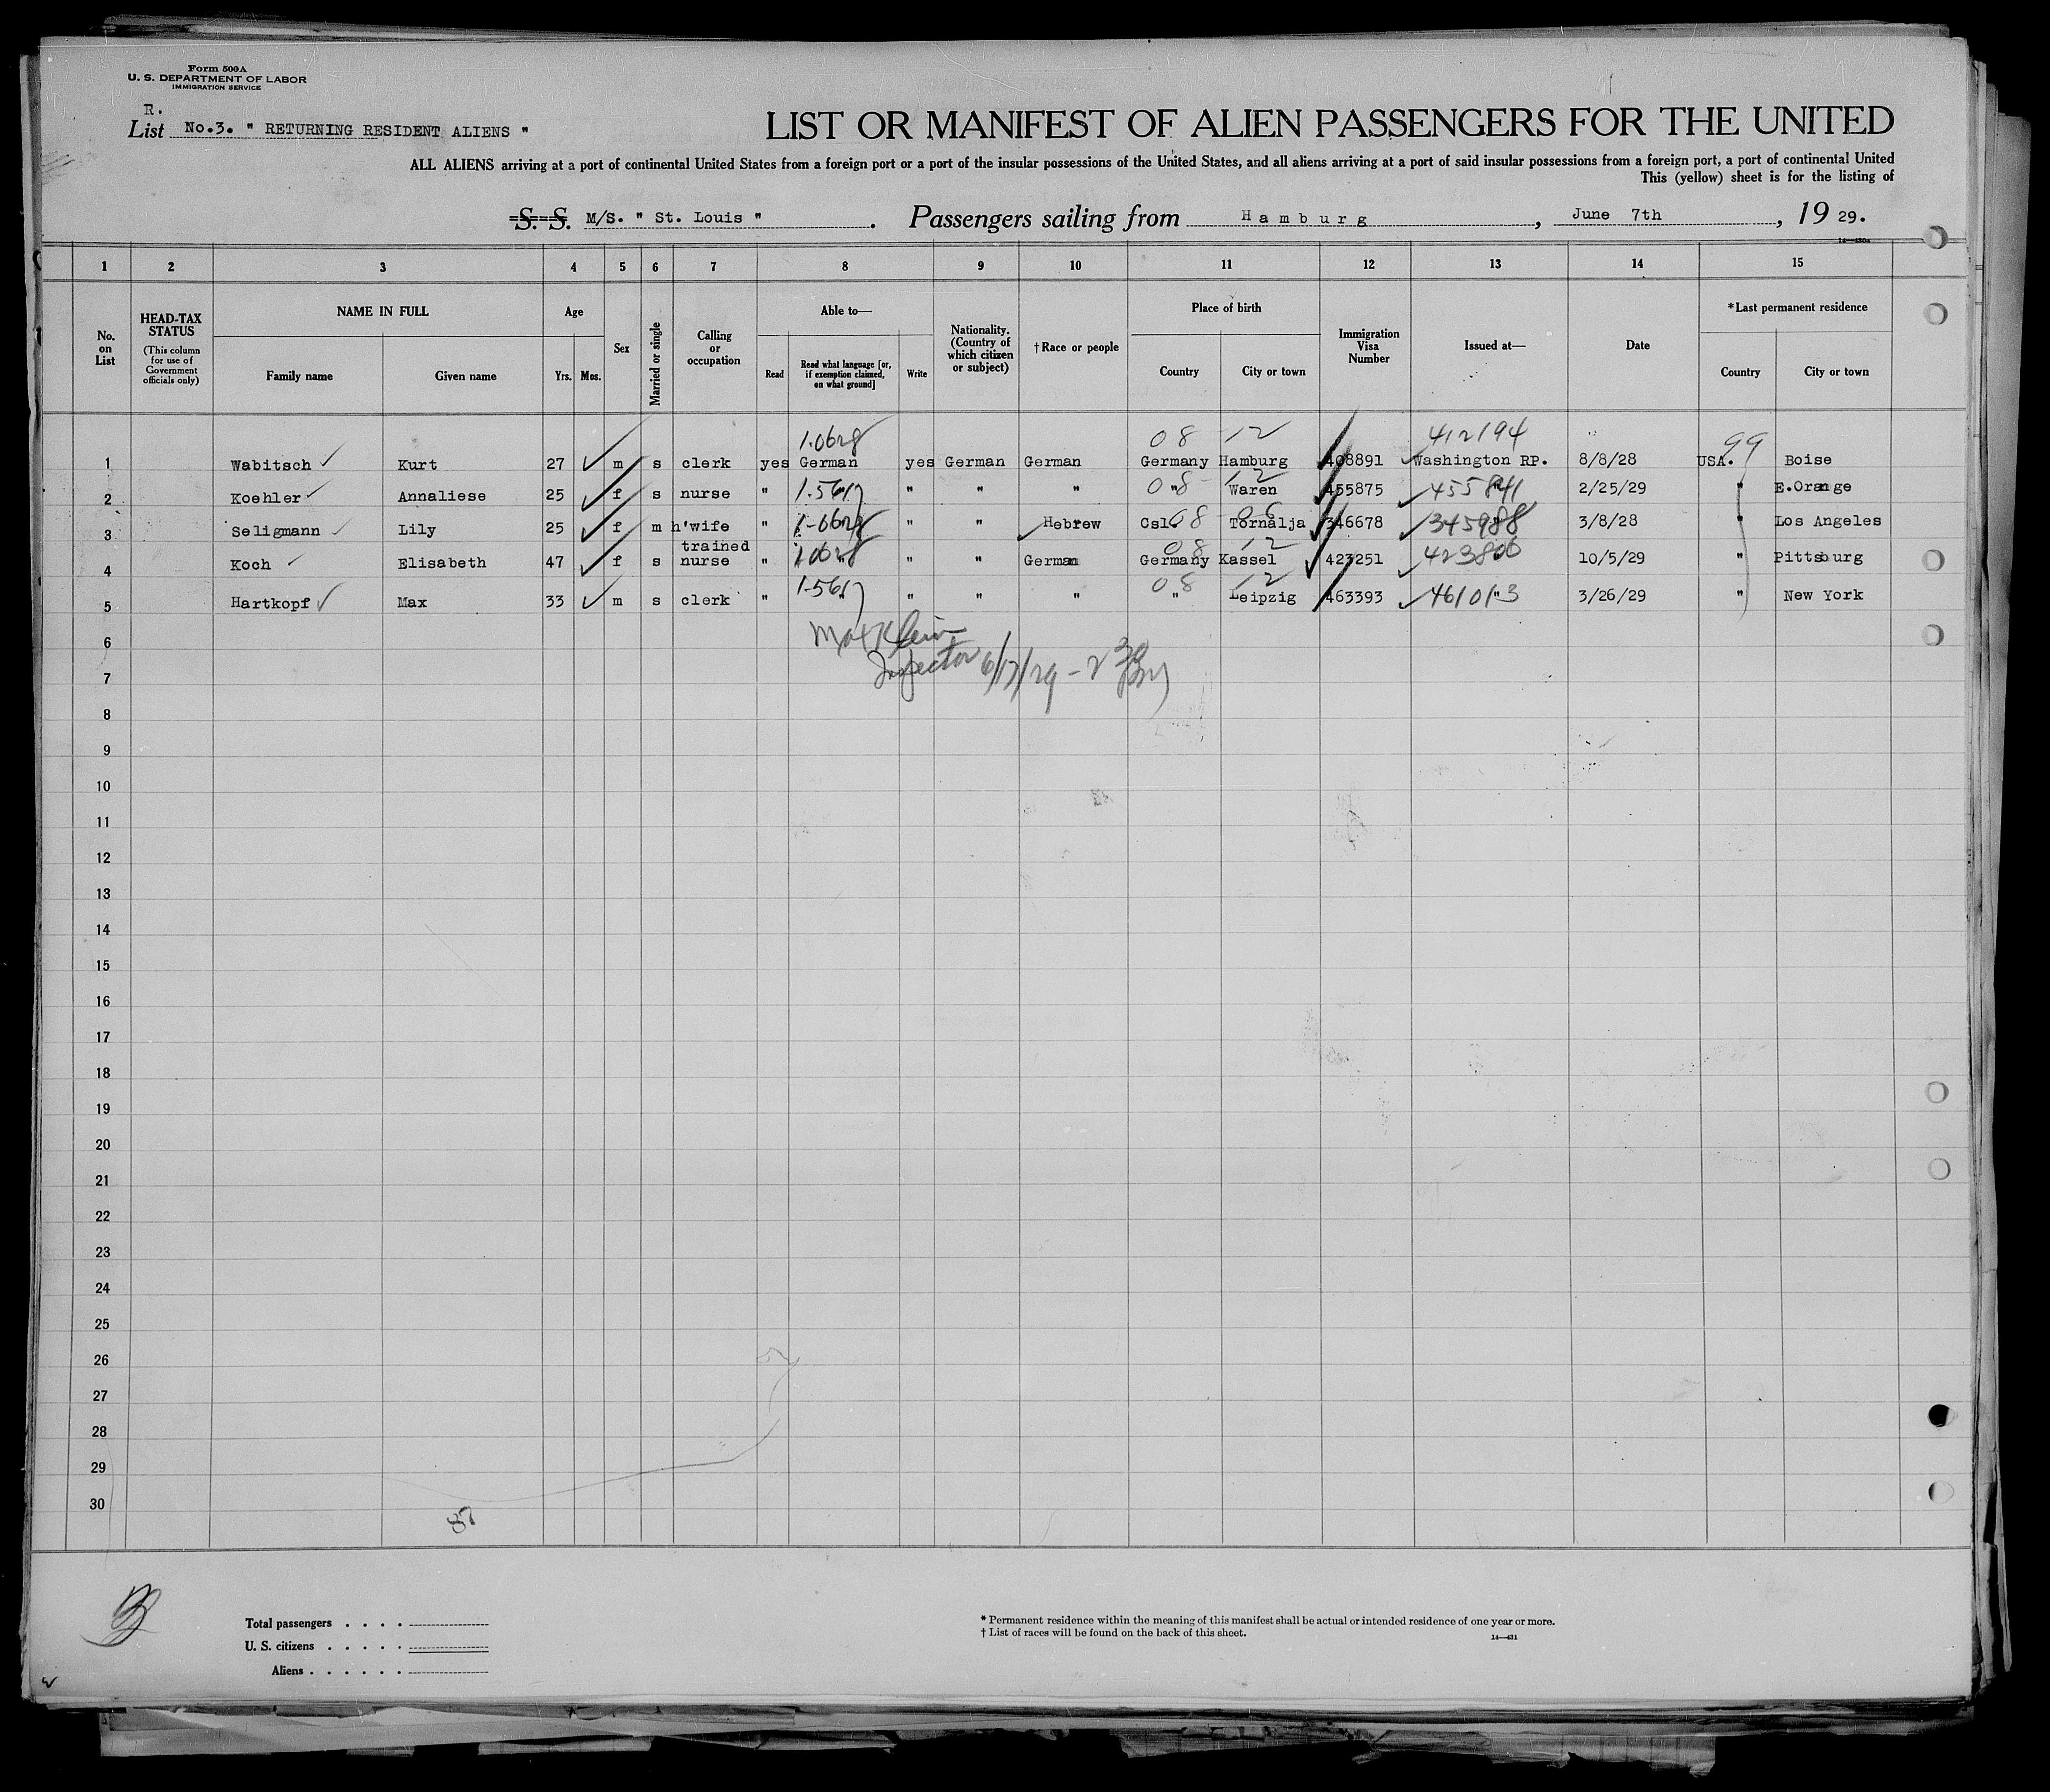 Form 500A
U. S. DEPARTMENT OF LABOR
IMMIGRATION SERVICE
R.
List No.3. " RETURNING RESIDENT ALIENS "
LIST OR MANIFEST OF ALIEN PASSENGERS FOR THE UNITED
ALL ALIENS arriving at a port of continental United States from a foreign port or a port of the insular possessions of the United States, and all aliens arriving at a port of said insular possessions from a foreign port, a port of continental United
This (yellow) sheet is for the listing of
S. S. M/S. " St. Louis ". Passengers sailing from Hamburg, June 7th, 19 29.
14—430a
1 2 3 4 5 6 7 8 9 10 11 12 13 14 15
No. on List
HEAD-TAX STATUS
(This column for use of Government officials only)
NAME IN FULL
Family name
Given name
Age
Yrs. Mos.
Sex
Married or single
Calling or occupation
Able to—
Read
Read what language [or, if exemption claimed, on what ground]
Write
Nationality. (Country of which citizen or subject)
† Race or people
Place of birth
Country
City or town
Immigration Visa Number
Issued at—
Date
* Last permanent residence
Country
City or town
1.0628 08 12 412194 99
1 Wabitsch Kurt 27 m s clerk yes German yes German German Germany Hamburg 408891 Washington RP. 8/8/28 USA. Boise
2 Koehler Annaliese 25 f s nurse " 1.5617 " " " 08 " 12 Waren 455875 455841 " 2/25/29 " E.Orange
3 Seligmann Lily 25 f m h'wife " 1-0628 " " Hebrew Csl. 08 06 Tornalja 346678 345988 3/8/28 " Los Angeles
4 Koch Elisabeth 47 f s trained nurse " 1.0628 " " German 08 Germany 12 Kassel 423251 423806 10/5/29 " Pittsburg
5 Hartkopf Max 33 m s clerk " 1-5617 " " " 08 " 12 Leipzig 463393 461013 " 3/26/29 " New York
Max Klein
Inspector 6/17/29 - 2 30
6
7
8
9
10
11
12
13
14
15
16
17
18
19
20
21
22
23
24
25
26
27
28
29
30
87
Total passengers . . . .
U. S. citizens . . . . .
Aliens . . . . . .
* Permanent residence within the meaning of this manifest shall be actual or intended residence of one year or more.
† List of races will be found on the back of this sheet.
14—431